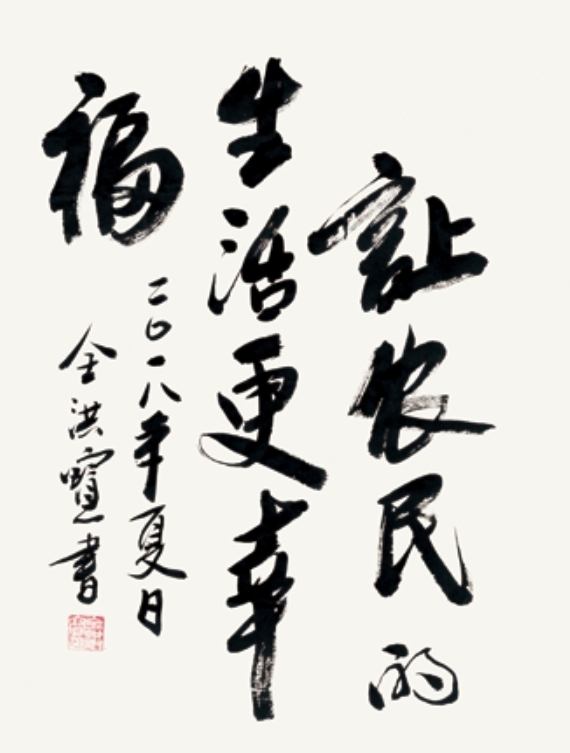 讓农民的
生活更幸
福
二〇一八年夏日
金洪寶書